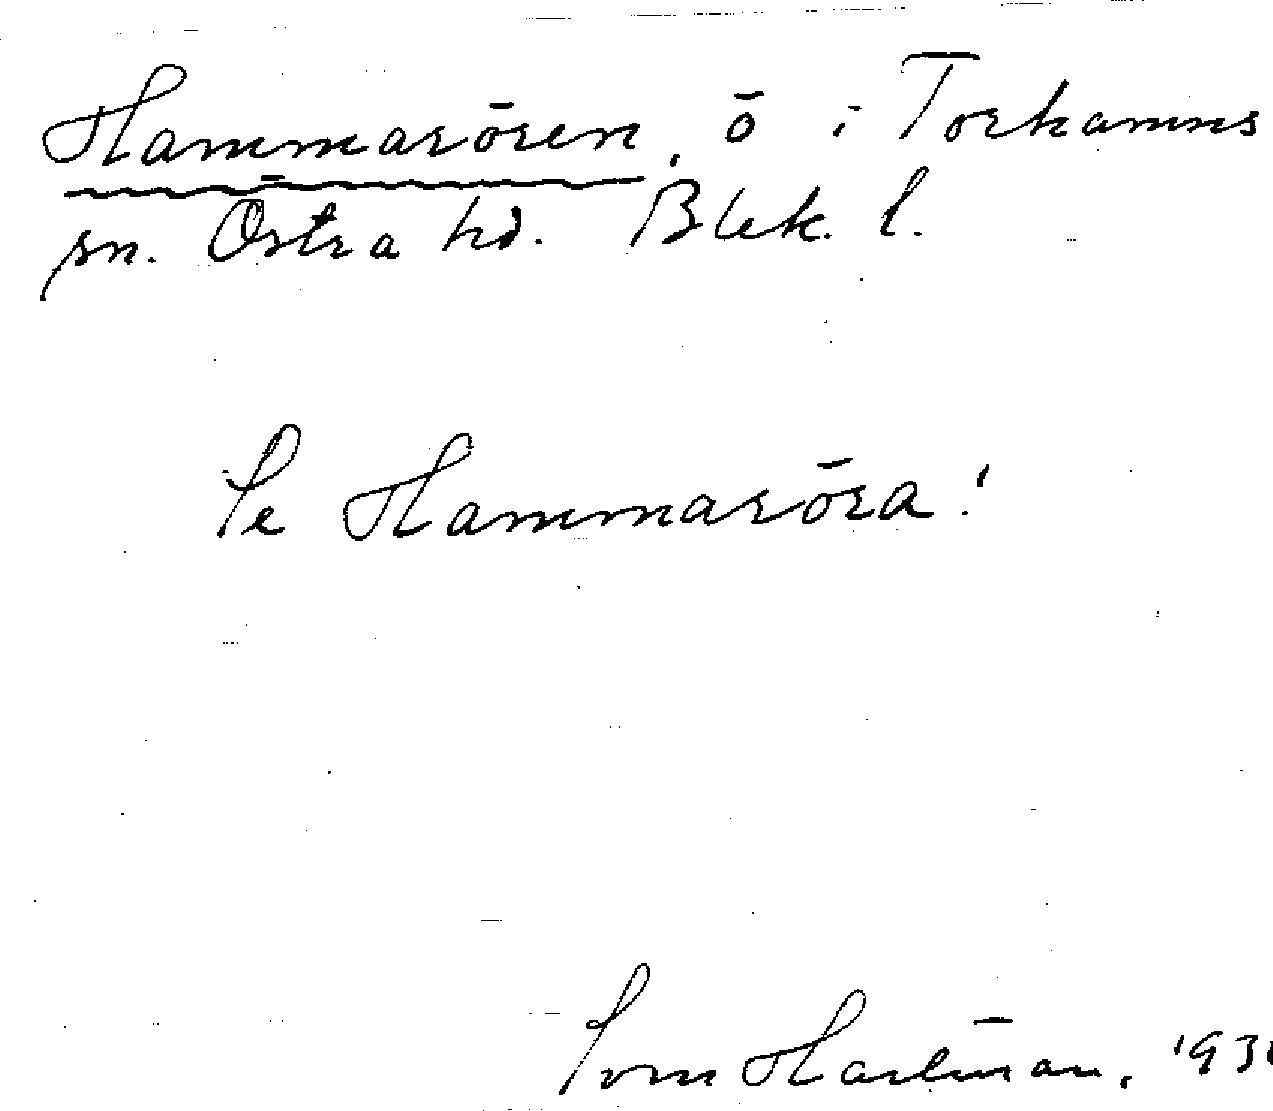 Hammarören, ö i Torhamns
sn. Östra hd. Blek. l.
Se Hammaröra!
Sven 1931